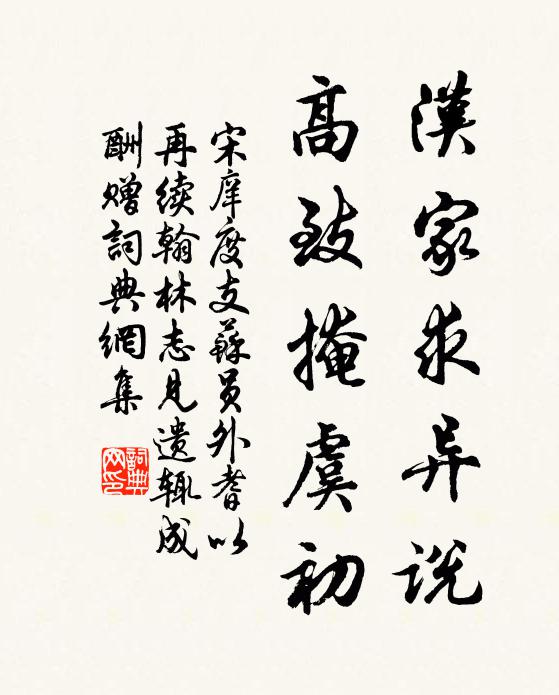 漢家求异说
高致掩虞初
宋庠度支蘇员外耆以
再续翰林志见遗辄成
酬赠詞典網集
詞典网印